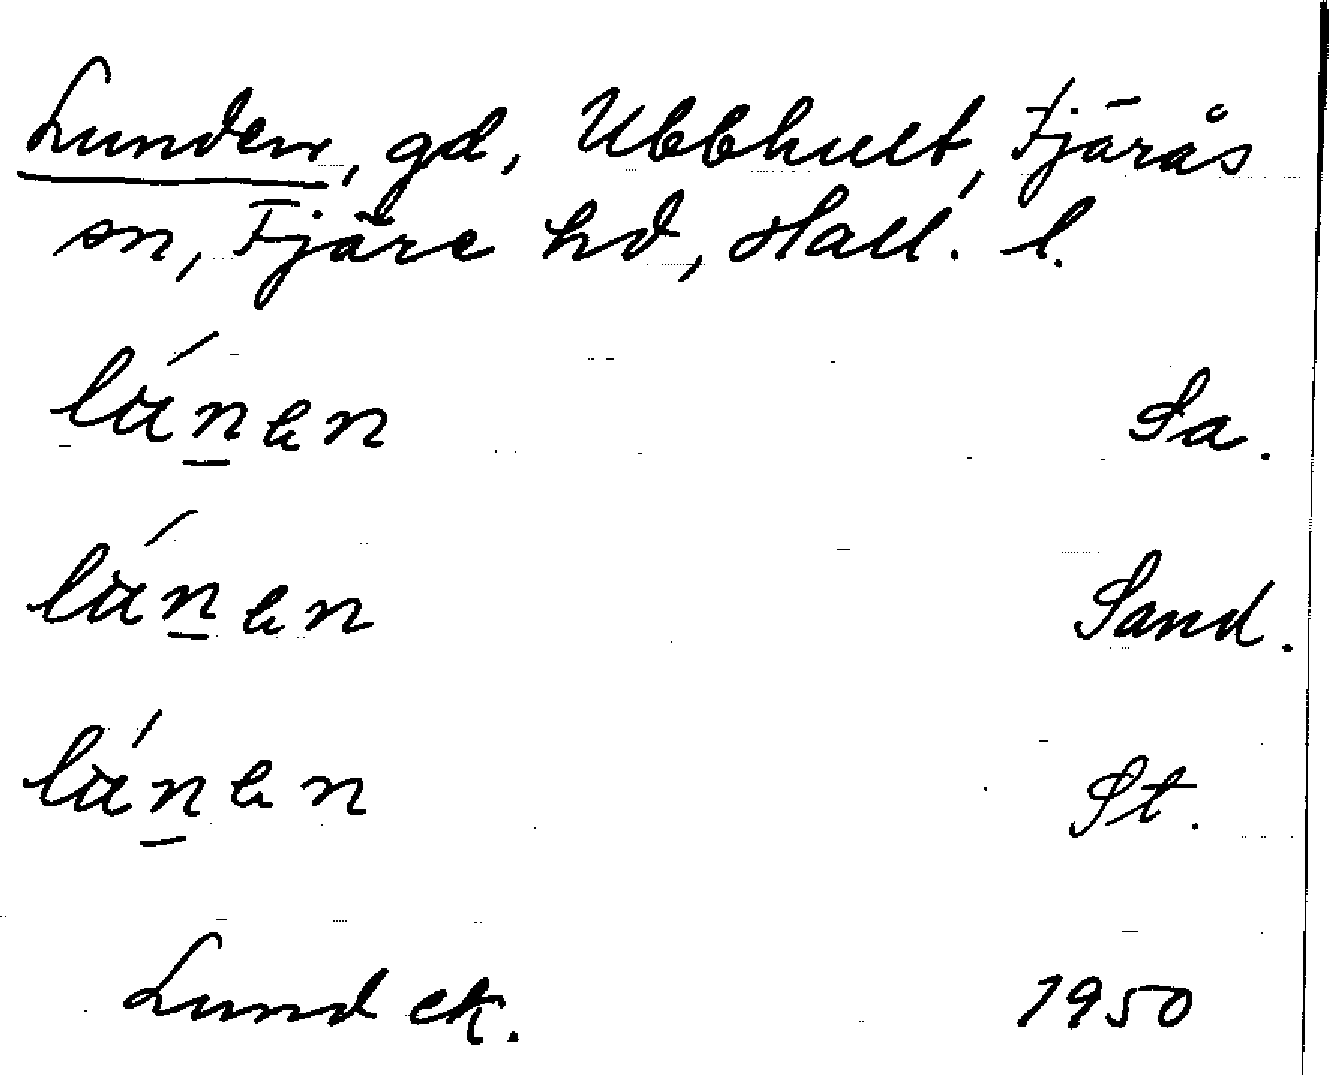 Lunden, gd, Ubbhult, Fjärås
sn, Fjäre hd, Hall. l.
Sa.
Sand.
St.
Lund ek. 1950